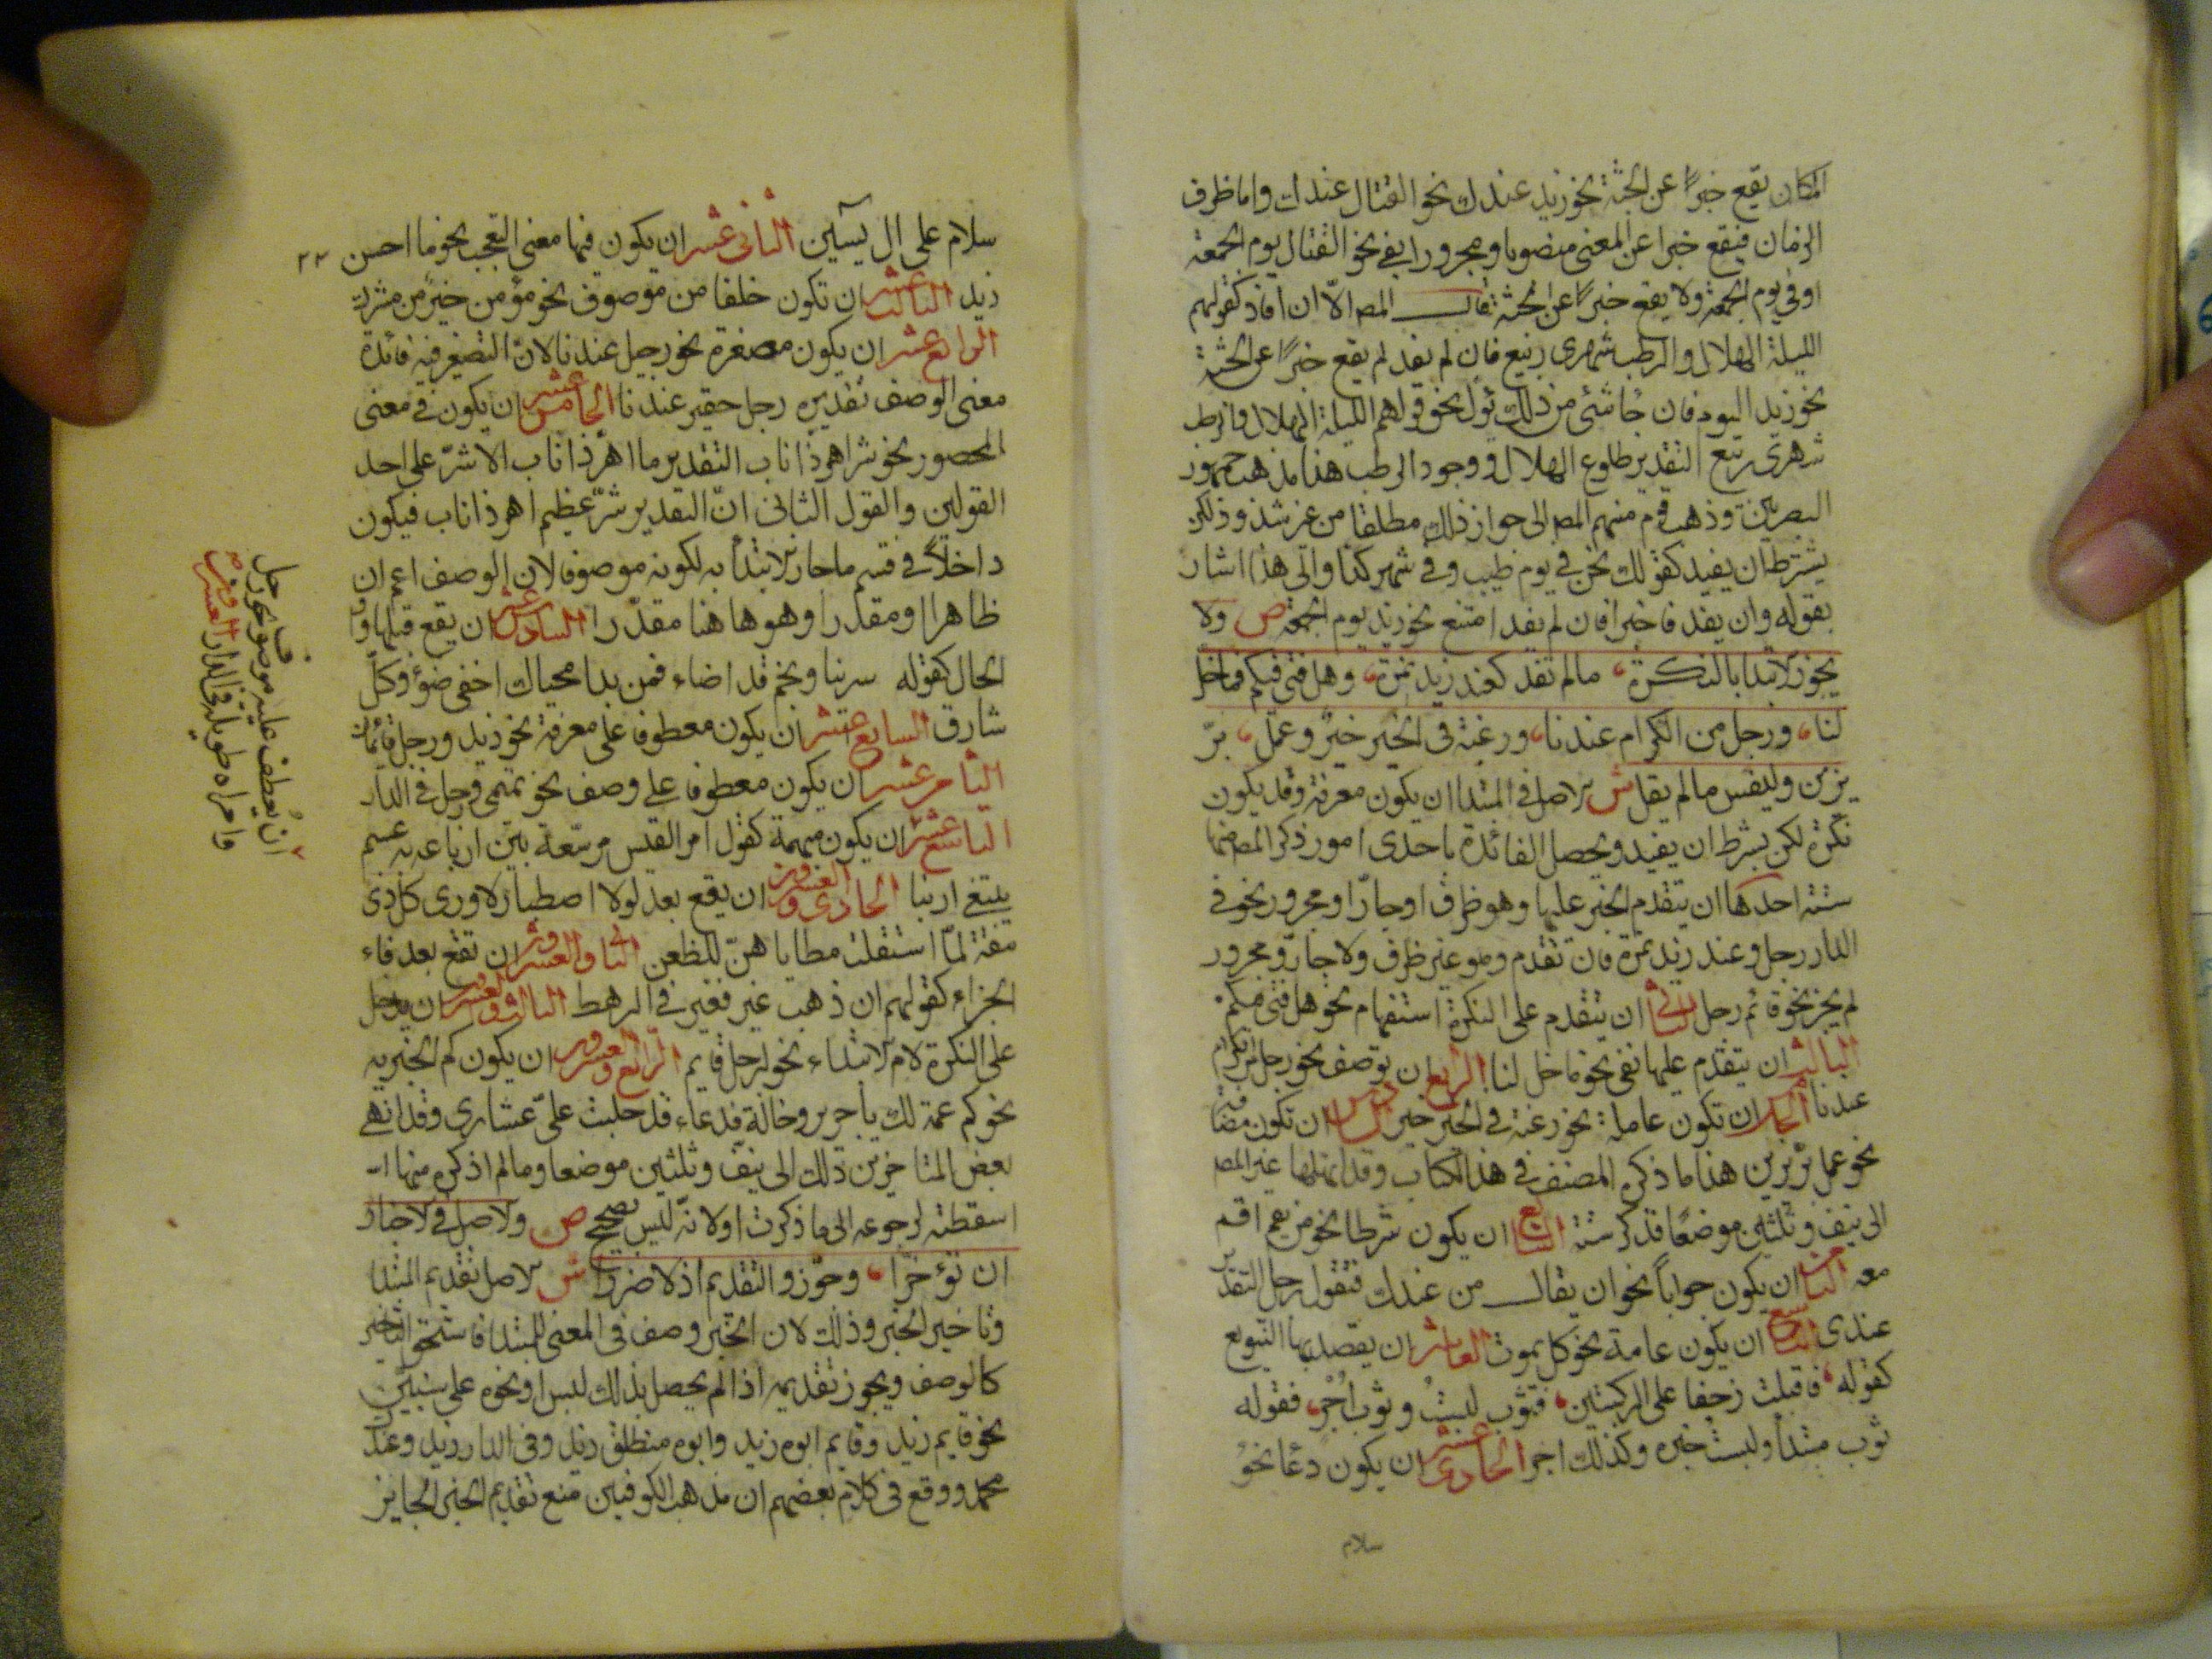 المكان يقع خبراً عن الجثة نحو زيد عندك نحو القتال عندك واما ظرف
الزمان فيقع خبرا عن المعنى منصوبا ومجرورا بفي نحو القتال يوم الجمعة
او في يوم الجمعة ولا يقع خبراً عن الجثة قال المص الّا ان افاد كقولهم
الليلة الهلال والرطب شهرى ربيع فان لم يفد لم يقع خبراً عن الجثة
نحو زيد اليوم فان جا شئ من ذلك تؤل نحو قولهم الليلة الهلال والرطب
شهرى ربيع التقدير طلوع الهلال ووجود الرطب هذا مذهب جمهور
البصريين وذهب قوم منهم المص الى جواز ذلك مطلقا من غير شذوذ لكن
يشترط ان يفيد كقولك نحن في يوم طيب وفي شهر كذا والى هذا اشار
بقوله وان يفد فاخبرا فان لم يفد امتنع نحو زيد يوم الجمعة ص ولا
يجوز لابتدا بالنكرة، مالم تفد كعند زيد نمرة، وهل فتى فيكم فما خل
لنا، ورجل من الكرام عندنا، ورغبة فى الخير خير وعمل، برّ
يزين وليقس مالم يقل ش لاصل في المبتدا ان يكون معرفة وقد يكون
نكرة لكن بشرط ان يفيد ويحصل الفائدة باحدى امور ذكر المص منها
ستة احدها ان يتقدم الخبر عليها وهو ظرف او جارّ او مجرور نحو في
الدار رجل وعند زيد نمرة فان تقدم وهو غير ظرف ولا جارّ ومجرور
لم يجز نحو قائم رجل الثانى ان يتقدم على النكرة استفهام نحو هل فتى فيكم
الثالث ان يتقدم عليها نفى نحو ما خل لنا الرابع ان توصف نحو رجل من الكرام
عندنا الخامس ان تكون عاملة نحو رغبة في الخير خير السادس ان تكون مضافة
نحو عمل برّ يزين هذا ما ذكره المصنف في هذا الكتاب وقد انهاها غير المص
الى نيف وثلثين موضعًا فذكر ستة السابع ان يكون شرطا نحو من يقم اقم
معه الثامن ان يكون جواباً نحو ان يقال من عندك فتقول رجل التقدير
عندى التاسع ان يكون عامة نحو كل يموت العاشر ان يقصد بها التنويع
كقوله، فاقبلت زحفا على الركبتين، فثوب لبست وثوب اجر، فقوله
ثوب مبتدأ ولبست خبره وكذلك اجر الحادى عشر ان يكون دعًا نحو
سلام
سلام على ال ياسين الثانى عشر ان يكون فيها معنى التعجب نحو ما احسن
زيد الثالث عشر ان تكون خلفا من موصوف نحو مؤمن خير من مشرك
الرابع عشر ان يكون مصغرة نحو رجيل عندنا لانّ التصغير فيه فائدة
معنى الوصف تقديره رجل حقير عندنا الخامس عشر ان يكون في معنى
المحصور نحو شر اهر ذا ناب التقدير ما اهرّ ذا ناب الا شرّ على احد
القولين والقول الثانى انّ التقدير شرّ عظيم اهر ذا ناب فيكون
داخلاً في قسم ما جاز لابتدأ به لكونه موصوفا لان الوصف اعم ان
ظاهرا او مقدرا وهو هاهنا مقدّرا السادس عشر ان يقع قبلها واو
الحال كقوله سرينا ونجم قد اضاء فمن بدا محياك اخفى ضوؤه كل
شارق السابع عشر ان يكون معطوفا على معرفة نحو زيد ورجل قائمان
الثامن عشر ان يكون معطوفا على وصف نحو تميمى ورجل في الدار
التاسع عشر ان يكون مبهمة كقول امر القيس مرسّعة بين ارباعه به عسم
يبتغى ارنبا الحادى والعشرون ان يقع بعد لولا اصطبار لاورى كل ذى
مقة لمّا استقلت مطاياهنّ للظعن الثانى والعشرون ان تقع بعد فاء
الجزاء كقولهم ان ذهب عير فعير في الرهط الثالث والعشرون ان يدخل
على النكرة لام لابتداء نحو لرجل قايم الرابع والعشرون ان يكون كم الخبريه
نحو كم عمة لك يا جرير وخالة فدعاء قد حلبت علىّ عشارى وقد انهى
بعض المتاخرين ذلك الى نيف وثلثين موضعا ومالم اذكره منها
اسقطته لرجوعه الى ما ذكرت اولا نّه ليس بصحيح ص ولاصل في لاخبار
ان تؤخرا، وجوّزوا التقديم اذ لا ضررا ش لاصل تقديم المبتدا
وتاخير الخبر وذلك لان الخبر وصف فى المعنى للمبتدا فاستحق التاخير
كالوصف ويجوز تقديمه اذا لم يحصل بذلك لبس او نحوه على سنبين
نحو قايم زيد وقايم ابوه زيد وابوه منطلق زيد وفى الدار زيد وعند
محمد ووقع في كلام بعضهم ان مذهب الكوفيين منع تقديم الخبر الجايز
٢٢
ان يعطف عليه موصوف نحو رجل
وامراه طويلة في الدار العشرون